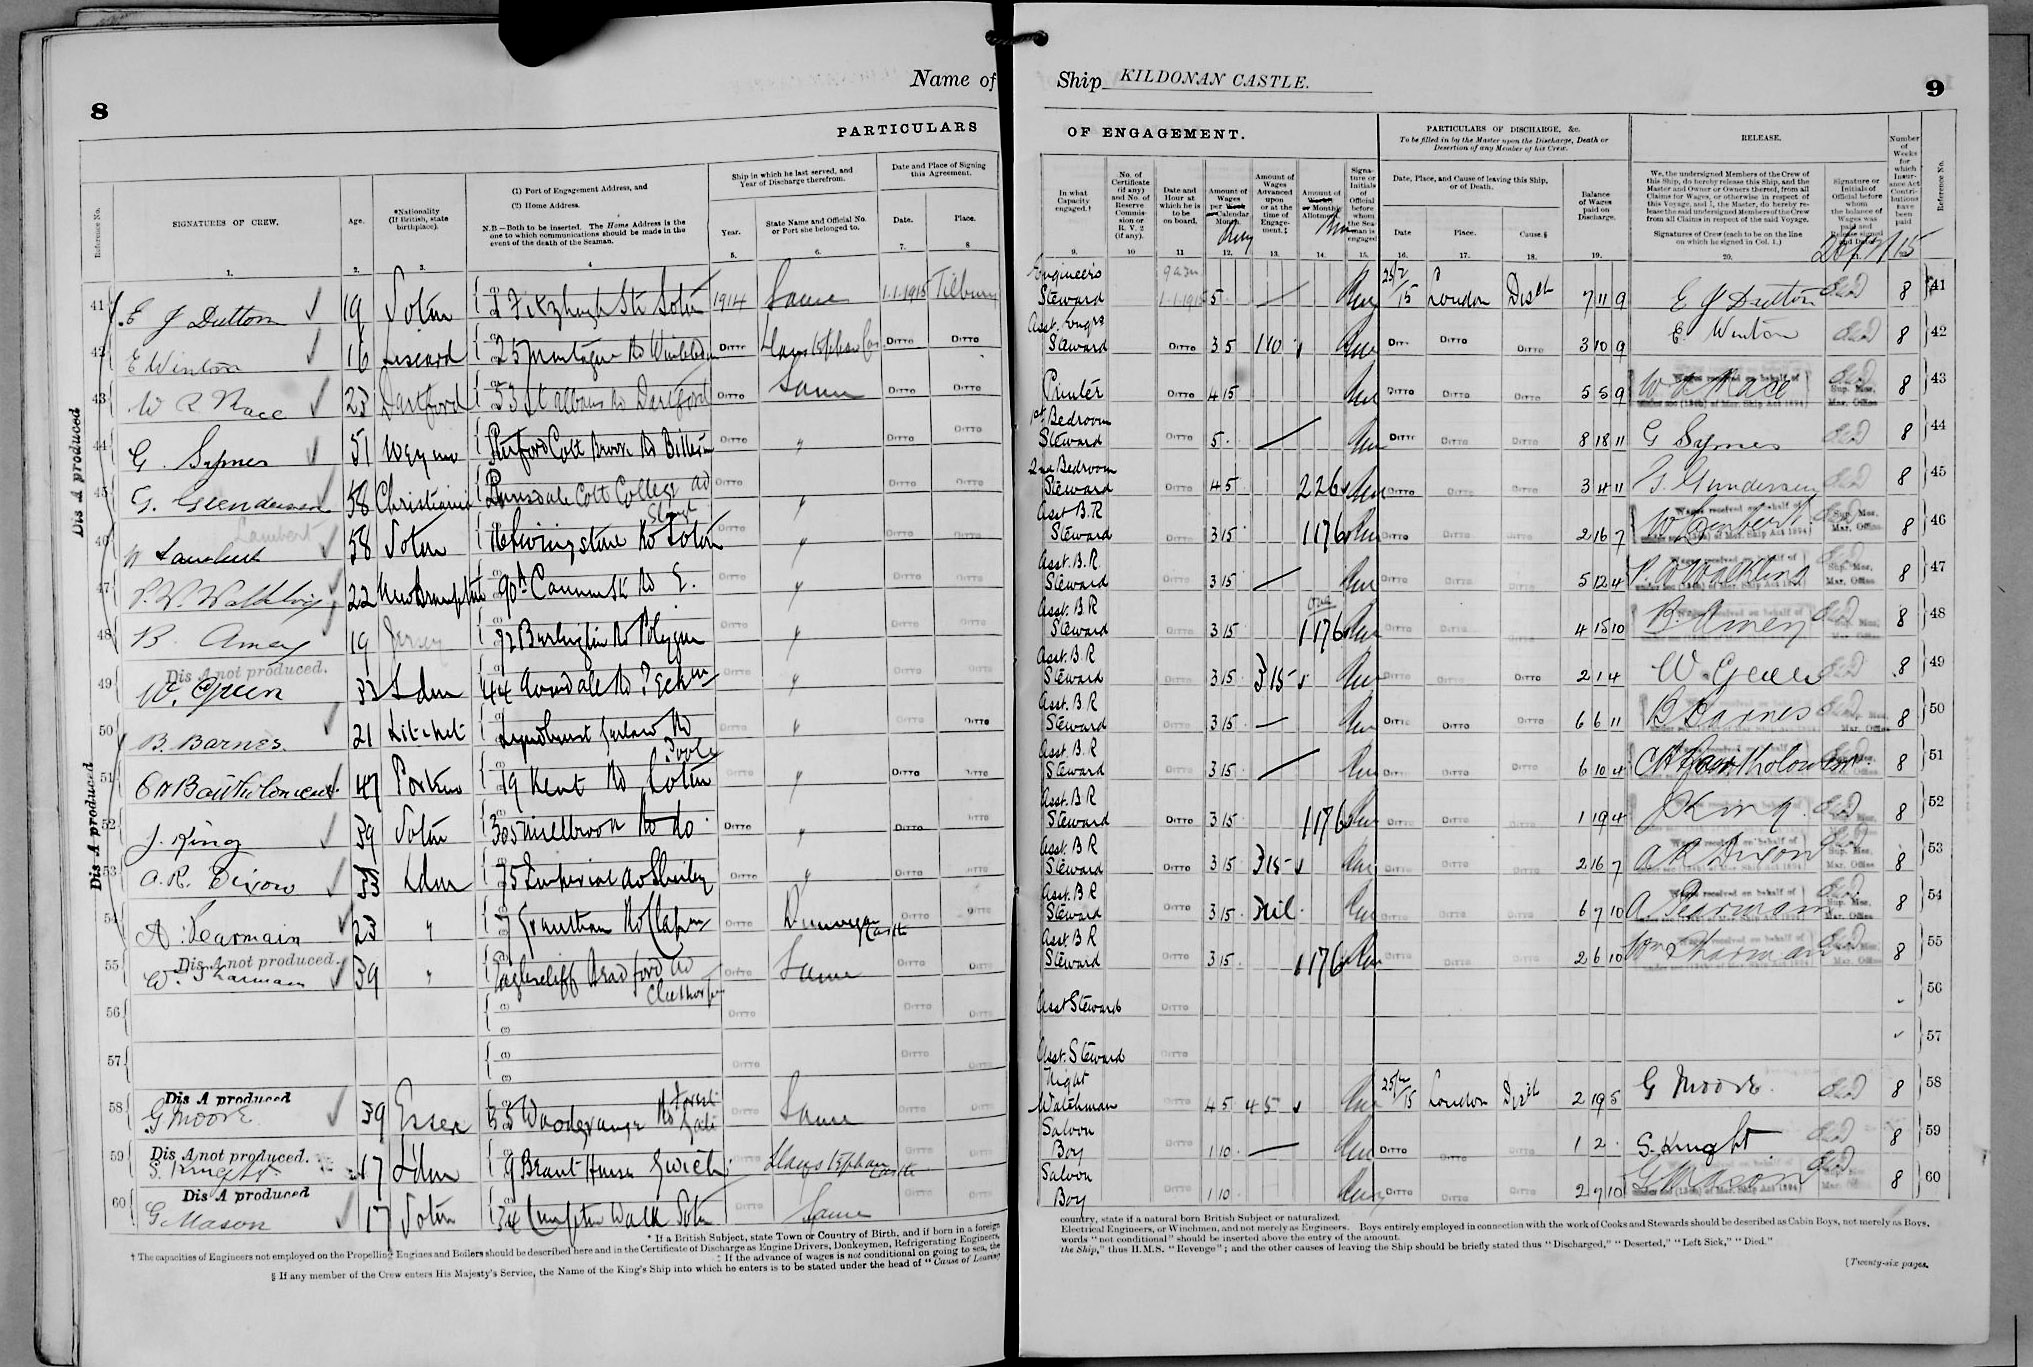 8
Name of
PARTICULARS
Reference No.
SIGNATURES OF CREW.
Age.
*Nationality
(If British, state
birthplace).
(1) Port of Engagement Address, and
(2) Home Address.
N.B.—Both to be inserted. The Home Address is the
one to which communications should be made in the
event of the death of the Seaman.
Ship in which he last served, and
Year of Discharge therefrom.
Year.
State Name and Official No.
or Port she belonged to.
Date and Place of Signing
this Agreement.
Date.
Place.
1. 2. 3. 4 5. 6. 7. 8
Dis A produced
41 E J Dutton 19 Soton 1 Fitzhugh St Soton 1914 Same 1.1.1915 Tilbury
42 E Winton 16 Liscard 25 Montague Rd Wimbledon Ditto Ditto Ditto
43 W R Race 23 Dartford 53 St Albans Rd Dartford Ditto Same Ditto Ditto
44 G. Symes 51 Weymo Cott Brook Rd Bittern Ditto " Ditto Ditto
45 G. Gundersen 58 Christiania Cott College Rd Ditto " Ditto Ditto
Lambert
46 W Lambert 58 Soton Livingstone Rd Soton Ditto " Ditto Ditto
47 P. W. Walkling 22 New Brompton 90A Rd E. Ditto " Ditto Ditto
48 B. Amey 19 Jersey 92 Burlington Rd Polygon Ditto " Ditto Ditto
Dis A not produced.
49 W. Green 33 Ldn 44 Avondale Rd Peckm Ditto " Ditto Ditto
Dis A produced
50 B. Barnes. 21 Litchet Lyndhurst Rd Poole Ditto " Ditto Ditto
51 C H Bartholomew 47 19 Kent Rd Soton Ditto " Ditto Ditto
52 J. King 39 Soton 305 Millbrook Rd do. Ditto " Ditto Ditto
53 A. R. Dixon Ldn 75 Imperial Av Shirley Ditto " Ditto Ditto
54 A. Pearmain 23 " 7 Grantham Rd Clapm Ditto Dunvegan Castle Ditto Ditto
Dis A not produced.
55 W. Sharman 39 " Bradford Av Cleethorpes Ditto Same Ditto Ditto
56 Ditto Ditto Ditto
57 Ditto Ditto Ditto
Dis A produced
58 G Moore 39 Essex Woodgrange Rd Forest Gate Ditto Same Ditto Ditto
Dis A not produced.
59 S. Knight 17 Ldn 9 Brant House Gwich Ditto Llanstephan Castle Ditto Ditto
Dis A produced
60 G. Mason 17 Soton 34 Crompton Walk Soton Ditto Same Ditto Ditto
* If a British Subject, state Town or Country of Birth, and if born in a foreign
† The capacities of Engineers not employed on the Propelling Engines and Boilers should be described here and in the Certificate of Discharge as Engine Drivers, Donkeymen, Refrigerating Engineers,
‡ If the advance of wages is not conditional on going to sea, the
§ If any member of the Crew enters His Majesty's Service, the Name of the King's Ship into which he enters is to be stated under the head of "Cause of Leaving
Ship KILDONAN CASTLE.
9
OF ENGAGEMENT.
PARTICULARS OF DISCHARGE, &c.
To be filled in by the Master upon the Discharge, Death or
Desertion of any Member of his Crew.
RELEASE.
In what
Capacity
engaged.†
No. of
Certificate
(if any)
and No. of
Reserve
Commis-
sion or
R. V. 2
(if any).
Date and
Hour at
which he is
to be
on board.
Amount of
Wages
per Week
or Calendar
Month.
Amount of
Wages
Advanced
upon
or at the
time of
Engage-
ment.‡
Amount of
Weekly
or Monthly
Allotment.
Signa-
ture or
Initials
of
Official
before
whom
the Sea-
man is
engaged
Date, Place, and Cause of leaving this Ship,
or of Death.
Date
Place.
Cause.§
Balance
of Wages
paid on
Discharge.
We, the undersigned Members of the Crew of
this Ship, do hereby release this Ship, and the
Master and Owner or Owners thereof, from all
Claims for Wages, or otherwise in respect of
this Voyage, and I, the Master, do hereby re-
lease the said undersigned Members of the Crew
from all Claims in respect of the said Voyage.
Signatures of Crew (each to be on the line
on which he signed in Col. 1.)
Signature or
Initials of
Official before
whom
the balance of
Wages was
paid and
Release signed
and Date.
Number
of
Weeks
for
which
Insur-
ance Act
Contri-
butions
have
been
paid
Reference No.
9. 10 11 12. 13. 14. 15. 16. 17. 18. 19. 20.
Engineers Steward 1.1.1915 5 London Disch 7 11 9 E J Dutton 8 41
Asst. Engrs Steward Ditto 3 5 1 10 Ditto Ditto Ditto 3 10 9 E. Winton 8 42
Printer Ditto 4 15 Ditto Ditto Ditto 5 5 9 W R Race 8 43
1st Bedroom Steward Ditto 5 Ditto Ditto Ditto 8 18 11 G Symes 8 44
2nd Bedroom Steward Ditto 4 5 2 2 6 Ditto Ditto Ditto 3 4 11 G. Gundersen 8 45
Asst B.R Steward Ditto 3 15 1 17 6 Ditto Ditto Ditto 2 16 7 W Lambert 8 46
Asst. B.R. Steward Ditto 3 15 Ditto Ditto Ditto 5 12 4 P. W Walkling 8 47
Asst. B.R Steward Ditto 3 15 1 17 6 Ditto Ditto Ditto 4 15 10 B. Amey 8 48
Asst. B R Steward Ditto 3 15 3 15 Ditto Ditto Ditto 2 1 4 W. Green 8 49
Asst. B R Steward Ditto 3 15 Ditto Ditto Ditto 6 6 11 B Barnes 8 50
Asst. B R Steward Ditto 3 15 Ditto Ditto Ditto 6 10 4 C H Bartholomew 8 51
Asst. B R Steward Ditto 3 15 1 17 6 Ditto Ditto Ditto 1 19 4 J King. 8 52
Asst. B R Steward Ditto 3 15 3 15 Ditto Ditto Ditto 2 16 7 A R Dixon 8 53
Asst. B R Steward Ditto 3 15 Nil. Ditto Ditto Ditto 6 7 10 A. Pearmain 8 54
Asst. B R Steward Ditto 3 15 1 17 6 Ditto Ditto Ditto 2 6 10 Wm Sharman 8 55
Asst Steward Ditto 56
Asst. Steward Ditto 57
Night Watchman 4 5 4 5 London Disch 2 19 5 G Moore 8 58
Saloon Boy Ditto 1 10 Ditto Ditto Ditto 1 2 S. Knight 8 59
Saloon Boy Ditto 1 10 Ditto Ditto Ditto 2 7 10 G Mason 8 60
country, state if a natural born British Subject or naturalized.
Electrical Engineers, or Winchmen, and not merely as Engineers. Boys entirely employed in connection with the work of Cooks and Stewards should be described as Cabin Boys, not merely as Boys.
words "not conditional" should be inserted above the entry of the amount.
the Ship," thus H.M.S. "Revenge"; and the other causes of leaving the Ship should be briefly stated thus "Discharged," "Deserted," "Left Sick," "Died."
[Twenty-six pages.